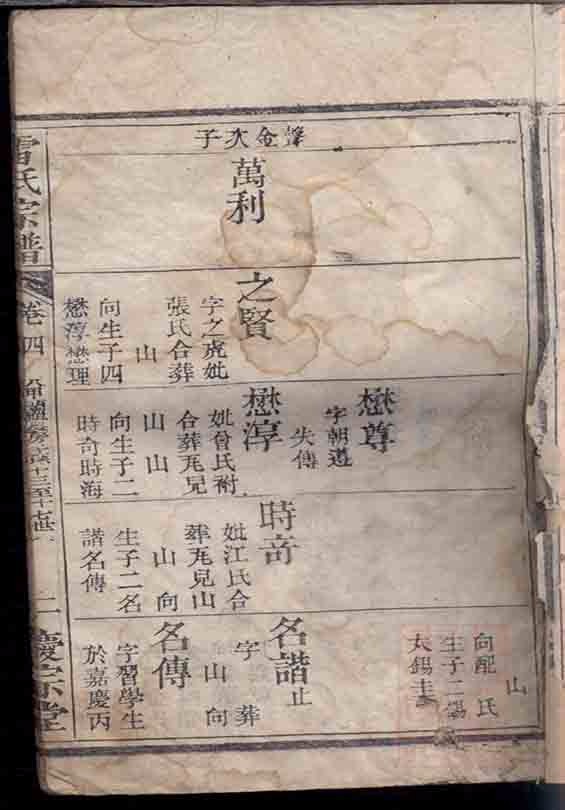 聲金次子
萬利
之賢
字之虎妣
張氏合葬
山
向生子四
懋淳懋理
懋尊
字朝遵
失傳
懋淳
妣曾氏祔
合葬兎兒
山山
向生子二
時奇時海
時奇
妣江氏合
葬兎兒山
山向
生子二名
諧名傳
山
向配氏
生子二錫
太錫圭
名諧止
字葬
山向
名傳
字習學生
於嘉慶丙
氏宗譜
卷四
二
慶宗堂